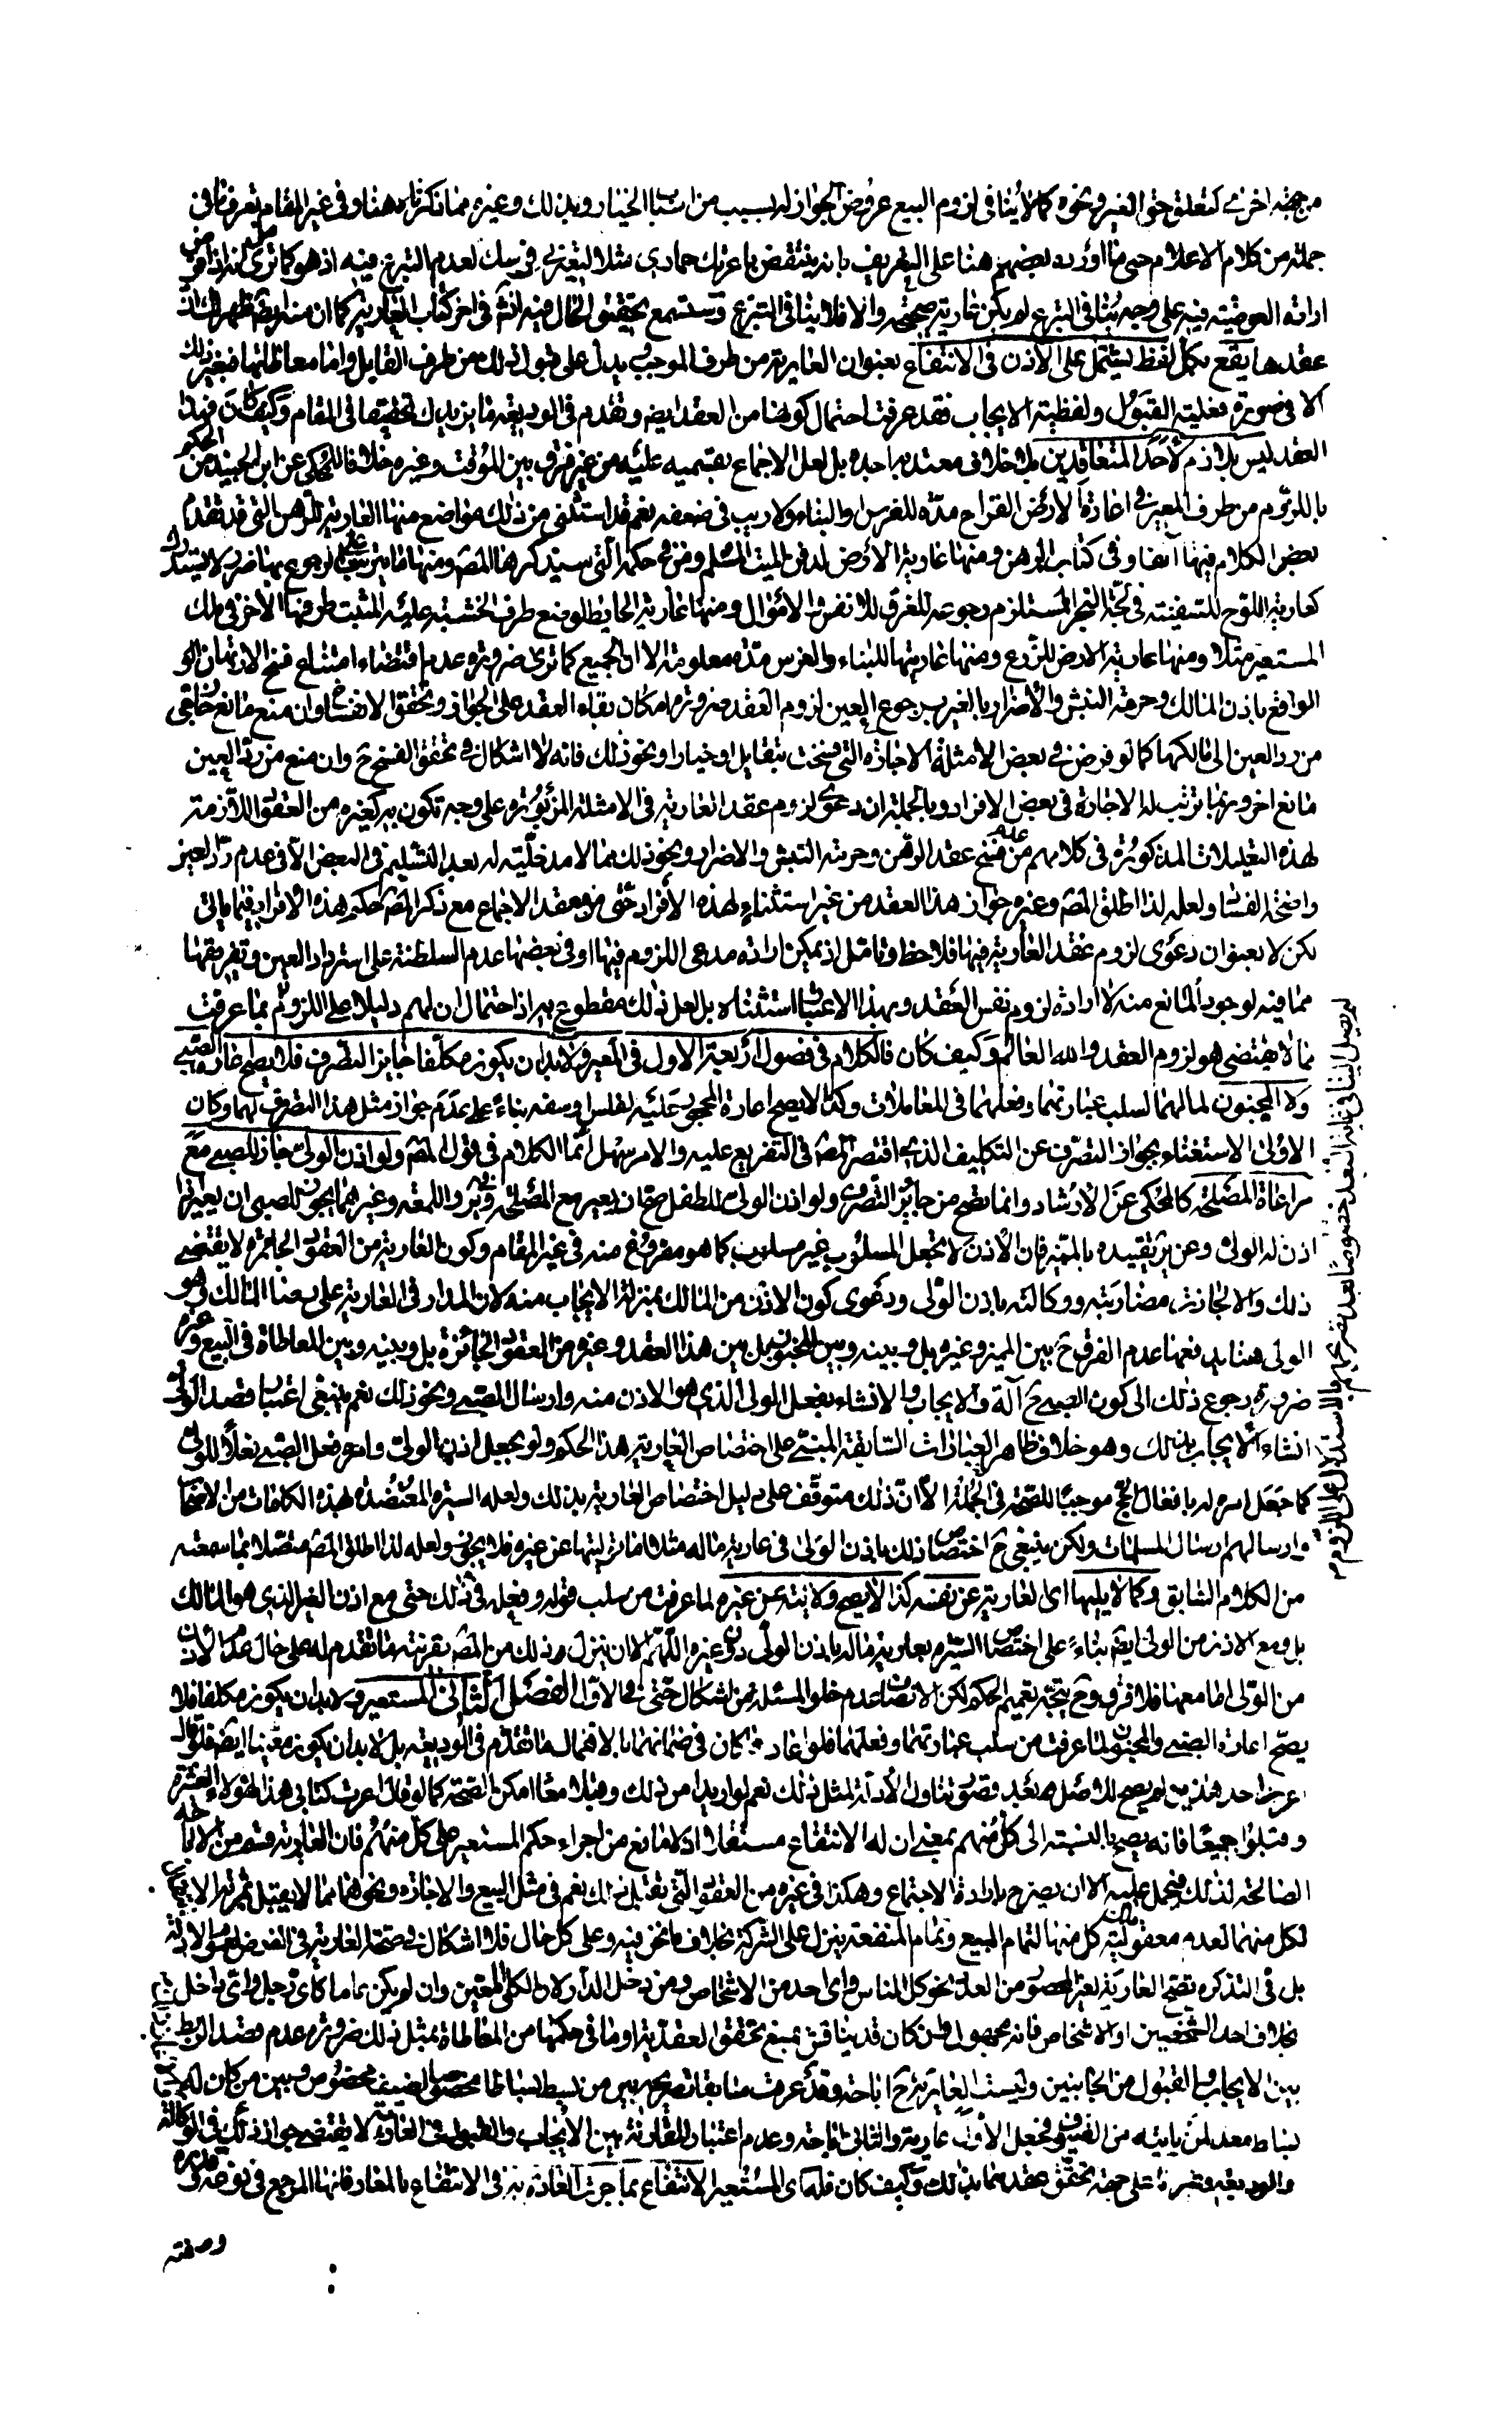 من جهة اخرى كتعلق حق الغير ونحوه كما لا ينافى لزوم البيع عروض الجواز له بسبب من اسباب الخيار وبذلك وغيره مما ذكرناه هنا وفى غير المقام تعرف ما فى
جملة من كلام الاعلام حتى ما اورده بعضهم هنا على التعريف بانه ينتقض باعرتك حمارى مثلا لتعيرنى فرسك لعدم التبرع فيه اذ هو كما ترى
ارادة العوضية فيه على وجه ينافى التبرع لم يكن عارية صحيحة والا فلا ينافى التبرع وستسمع تحقيق الحال فيه انش فى اخر كتاب العارية كما ان منه ايضا ظهر لك ان
عقدها يقع بكل لفظ يشتمل على الاذن فى الانتفاع بعنوان العارية من طرف الموجب يدل على قبول ذلك من طرف القابل واما معاطاتها فبغير ذلك
الا فى صورة فعلية القبول ولفظية الايجاب فقد عرفت احتمال كونها من العقد ايضا وتقدم فى الوديعة ما يزيدك تحقيقا فى المقام وكيف كان فهذا
العقد ليس بلازم لاحد المتعاقدين بلا خلاف معتد به اجده بل لعل الاجماع بقسميه عليه من غير فرق بين المؤقت وغيره خلافا للمحكى عن ابن الجنيد من الحكم
باللزوم من طرف المعير فى اعارة الارض القراح مدة للغرس والبناء ولا ريب فى ضعفه نعم قد استثنى من ذلك مواضع منها العارية للرهن التى قد تقدم
بعض الكلام فيها آنفا وفى كتاب الرهن ومنها عارية الارض لدفن الميت المسلم ومن فى حكمه التى سيذكرها المص ومنها ما يترتب على الرجوع بها ضرر لا يستدرك
كعارية اللوح للسفينة فى لجة البحر المستلزم رجوعه للغرق للانفس او الاموال ومنها عارية الحايط لوضع طرف الخشبة عليه المثبت طرفها الاخر فى ملك
المستعير مثلا ومنها عارية الارض للزرع ومنها عاريتها للبناء والغرس مدة معلومة الا ان الجميع كما ترى ضرورة عدم اقتضاء امتناع فسخ الارتهان
الواقع باذن المالك وحرمة النبش والاضرار بالغير برجوع العين لزوم العقد ضرورة امكان بقاء العقد على الجواز وتحقق الانفساخ وان منع مانع خارجى
من رد العين الى مالكها كما لو فرض فى بعض الامثلة الاجارة التى فسخت بتقايل او خيار او نحو ذلك فانه لا اشكال فى تحقق الفسخ ح وان منع من رد العين
مانع اخر وربما ترتب له الاجارة فى بعض الافراد وبالجملة ان دعوى لزوم عقد العارية فى الامثلة المزبورة على وجه تكون به كغيره من العقود اللازمة
لهذه التعليلات المذكورة فى كلامهم من فسخ عقد الرهن وحرمة النبش والاضرار ونحو ذلك مما لا مدخلية له بعد التسليم فى البعض الا فى عدم رد العين
واضحة الفساد ولعله لذا اطلق المص وغيره جواز هذا العقد من غير استثناء لهذه الافراد حتى فى معقد الاجماع مع ذكر المص حكم هذه الافراد فيما ياتى
لكن لا بعنوان دعوى لزوم عقد العارية فيها فلاحظ وتامل اذ يمكن ارادة مدعى اللزوم فيها او فى بعضها عدم السلطنة على استرداد العين وتفريقها
مما فيه لوجود المانع منه لا ارادة لزوم نفس العقد وبهذا الاعتبار استثناه بل لعل ذلك مقطوع به اذ احتمال ان لهم دليلا على اللزوم بما عرفت
مما لا يقتضى هو لزوم العقد والله العالم وكيف كان فالكلام فى فصول اربعة الاول فى المعير ولابد ان يكون مكلفا جايز التصرف فلا يصح اعارة الصبى
ولا المجنون لمالهما لسلب عبارتهما وفعلهما فى المعاملات وكذا لا يصح اعارة المحجور عليه لفلس او سفه بناء على عدم جواز مثل هذا التصرف لهما وكان
الاولى الاستغناء بجواز التصرف عن التكليف الذى اقتصر المص فى التفريع عليه والامر سهل انما الكلام فى قول المص ولو اذن الولى جاز للصبى مع
مراعاة المصلحة كالمحكى عن الارشاد وانما تصح من جايز التصرف ولو اذن الولى للطفل صح ان يعير مع المصلحة وفى ير واللمعة وغيرهما يجوز للصبى ان يعير اذا
اذن له الولى وعن ير تقييده بالمميز فان الاذن لا تجعل المسلوب غير مسلوب كما هو مفروغ منه فى غير المقام وكون العارية من العقود الجائزة لا يقتضى
ذلك والا لجازت مضاربته ووكالته باذن الولى ودعوى كون الاذن من المالك بمنزلة الايجاب منه لان المدار فى العارية على رضا المالك وهو
الولى هنا يدفعها عدم الفرق ح بين المميز وغيره بل وبينه وبين المجنون بل بين هذا العقد وغيره من العقود الجائزة بل وبينه وبين المعاطاة فى البيع وغيره
ضرورة رجوع ذلك الى كون الصبى ح آلة والايجاب والانشاء بفعل الولى الذى هو الاذن منه وارسال الصبى ونحو ذلك نعم ينبغى اعتبار قصد الولى
انشاء الايجاب بذلك وهو خلاف ظاهر العبارات السابقة المبنى على اختصاص العارية هذا الحكم ولو بجعل اذن الولى وامره فعل الصبى فعلا للولى
كما جعل امره له بافعال الحج موجبا للصحة فى الجملة الا ان ذلك متوقف على دليل اختصاص العارية بذلك ولعله السيرة المعتضدة بهذه الكلمات من الاصحاب
وارسالهم ارسال المسلمات ولكن ينبغى ح اختصاص ذلك باذن الولى فى عارية ماله مثلا اما توليتها عن غيره فلا يجوز ولعله لذا اطلق المص متصلا بما سمعته
من الكلام السابق وكما لا يليها اى العارية عن نفسه كذا لا يصح ولايته عن غيره لما عرفت من سلب قوله وفعله فى ذلك حتى مع اذن الغير الذى هو المالك
بل ومع الاذن من الولى ايضا بناء على اختصاص السيرة بعارية ماله باذن الولى دون غيره اللهم الا ان ينزل ذلك من المص بقرينة ما تقدم له على حال عدم الاذن
من الولى اما معها فلا فرق وح يتجه تعميم الحكم لكن الانصاف عدم خلو المسئلة من اشكال حتى فى الاول الفصل الثانى فى المستعير ولابد ان يكون مكلفا فلا
يصح اعارة الصبى والمجنون لما عرفت من سلب عبارتهما وفعلهما فلو اعار كان فى ضمانهما بالاهمال ما تقدم فى الوديعة بل لابد ان يكون معينا ايضا فلو قال
اعرت احد هذين لم يصح للاصل بعد قصور تناول الادلة لمثل ذلك نعم لو اريدا من ذلك وقبلا معا امكن الصحة كما لو قال اعرت كتابى هذا لهؤلاء العشرة
وقبلوا جميعا فانه يصح بالنسبة الى كل منهم بمعنى ان له الانتفاع مستقلا اذ لا مانع من اجراء حكم المستعير على كل منهم فان العارية قسم من الاباحة
الصالحة لذلك فيحمل عليه الا ان يصرح بارادة الاجتماع وهكذا فى غيره من العقود التى تقبل ذلك نعم فى مثل البيع والاجارة ونحوهما مما لا يقبل
لكل منهما لعدم معقولية ملك كل منهما لتمام المبيع وتمام المنفعة ينزل على الشركة بخلاف ما نحن فيه وعلى كل حال فلا اشكال فى صحة العارية فى الفرض
بل فى التذكرة تصح العارية لغير المحصور من العدد نحو كل الناس واى احد من الاشخاص ومن دخل الدار والكلى المعين وان لم يكن عاما كاى رجل واى داخل
بخلاف احد الشخصين او الاشخاص فانه مجهول وان كان قد يناقش بمنع تحقق العقدية او ما فى حكمها من المعاطاة بمثل ذلك ضرورة عدم قصد الربط
بين الايجاب والقبول من الجانبين وليست العارية ح اباحة وقد عرفت سابقا تصريحهم بين من بسط بساطا مخصوصا لضيف مخصوص وبين من كان له
بساط معد لمن ياتيه من الضيوف فجعل الاول عارية والثانى اباحة وعدم اعتبار المقارنة بين الايجاب والقبول فى العارية لا يقتضى جواز ذلك فى الوكالة
والوديعة على جهة تحقق عقدهما بذلك وكيف كان فله اى المستعير الانتفاع بما جرت العادة به فى الانتفاع بالمعار فانها المرجع فى نوعه وقدره
وصفته
لم يصل الينا فى غاية البعد خصوصا بعد تصريحهم بالاستدلال على اللزوم